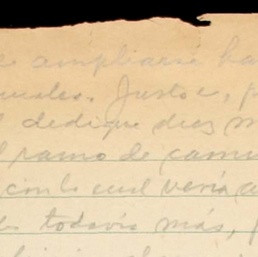 e ampliarse ha
uales. Justo e, p
l dedique diez m
l ramo de camu
con lo cual vería a
todavía más,